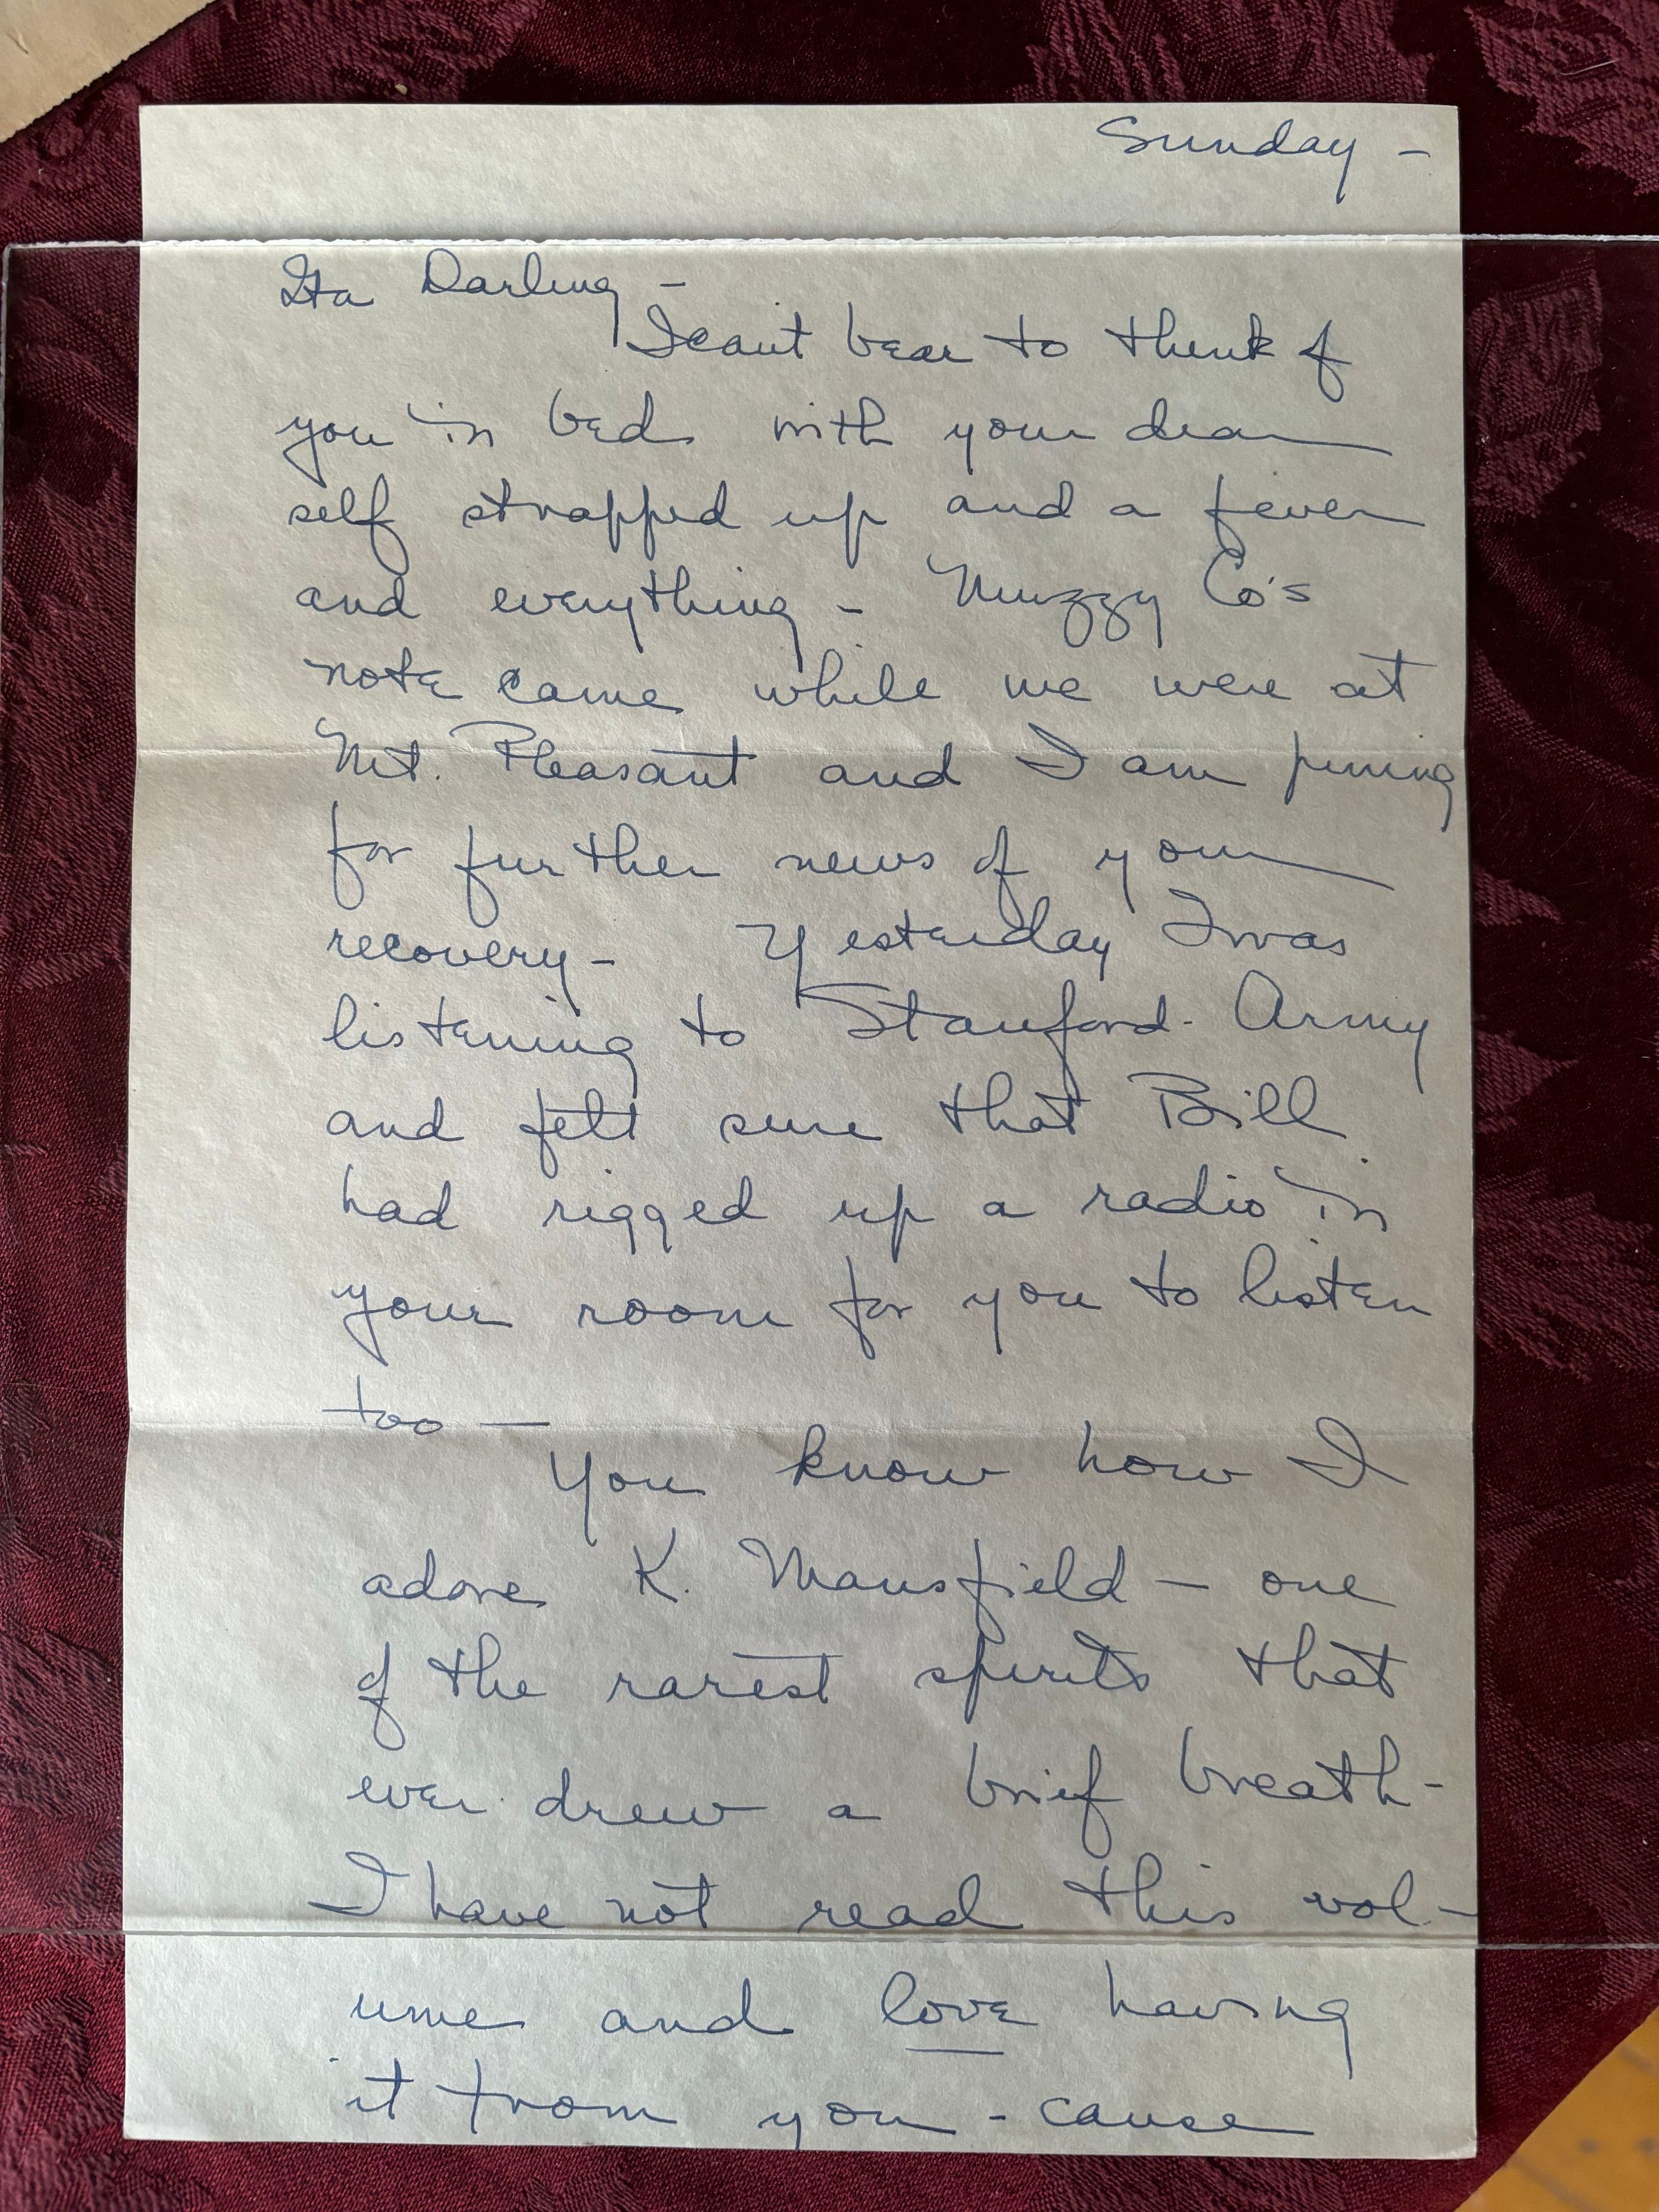 Sunday -
Ita Darling -
I can't bear to think of
you in bed with your dear
self strapped up and a fever
and everything - Muzzy Co's
note came while we were at
Mt. Pleasant and I am pining
for further news of your
recovery - Yesterday I was
listening to Stanford - Army
and felt sure that Bill
had rigged up a radio in
your room for you to listen
too —
You know how I
adore K. Mansfield — one
of the rarest spirits that
ever drew a brief breath -
I have not read this vol-
ume and love having
it from you - cause